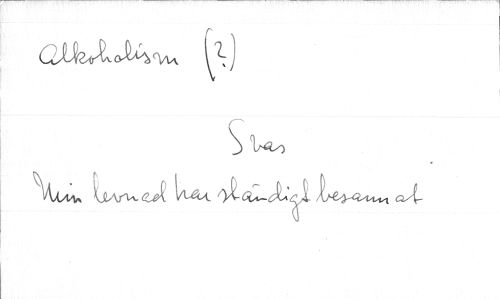 Alkoholism (?)
Svar
Min levnad har ständigt besannat